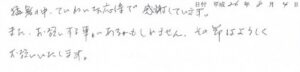 日付 平成26年8月4日
猛暑の中、ていねいな応待で感謝しています。
また、お話しする事があるかもしれません。その節はよろしく
お願いいたします。